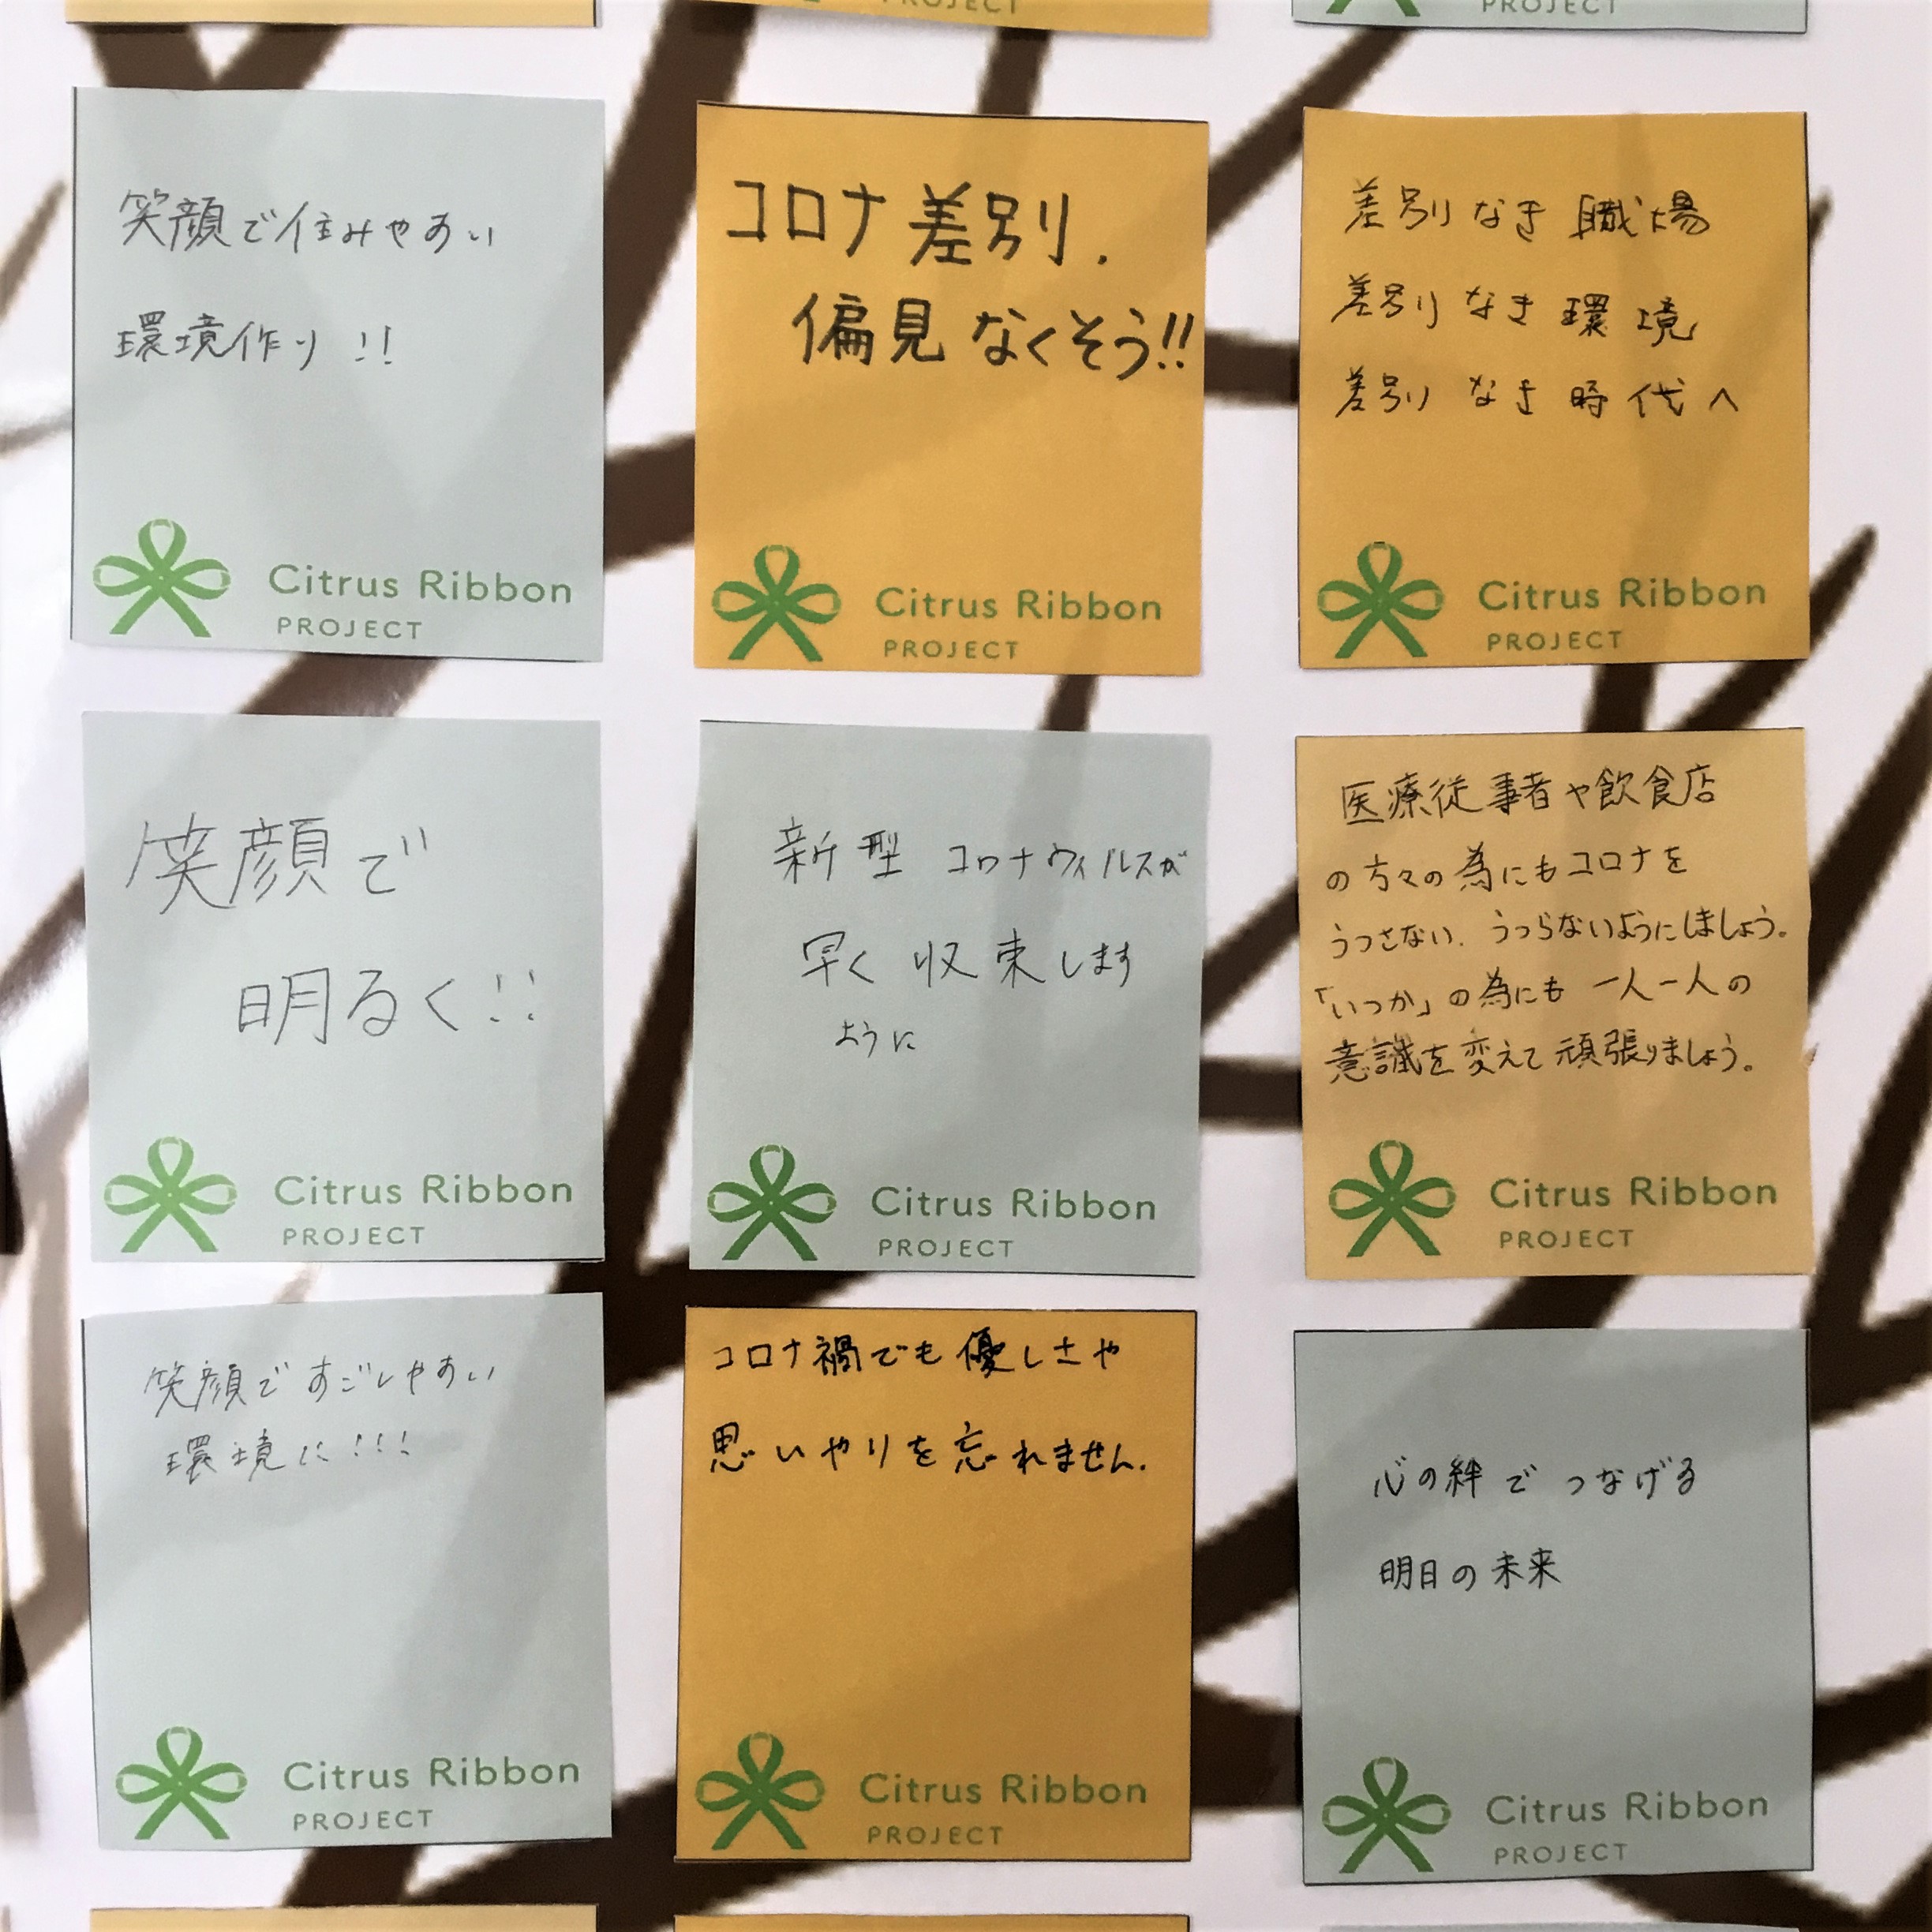 PROJECT
PROJECT
笑顔で住みやすい
環境作り!!
Citrus Ribbon
PROJECT
コロナ差別.
偏見なくそう!!
Citrus Ribbon
PROJECT
差別なき職場
差別なき環境
差別なき時代へ
Citrus Ribbon
PROJECT
笑顔で
明るく!!
Citrus Ribbon
PROJECT
新型コロナウィルスが
早く収束します
ように
Citrus Ribbon
PROJECT
医療従事者や飲食店
の方々の為にもコロナを
うつさない、うつらないようにしましょう。
「いつか」の為にも一人一人の
意識を変えて頑張りましょう。
Citrus Ribbon
PROJECT
笑顔ですごしやすい
環境に!!!
Citrus Ribbon
PROJECT
コロナ禍でも優しさや
思いやりを忘れません.
Citrus Ribbon
PROJECT
心の絆でつなげる
明日の未来
Citrus Ribbon
PROJECT